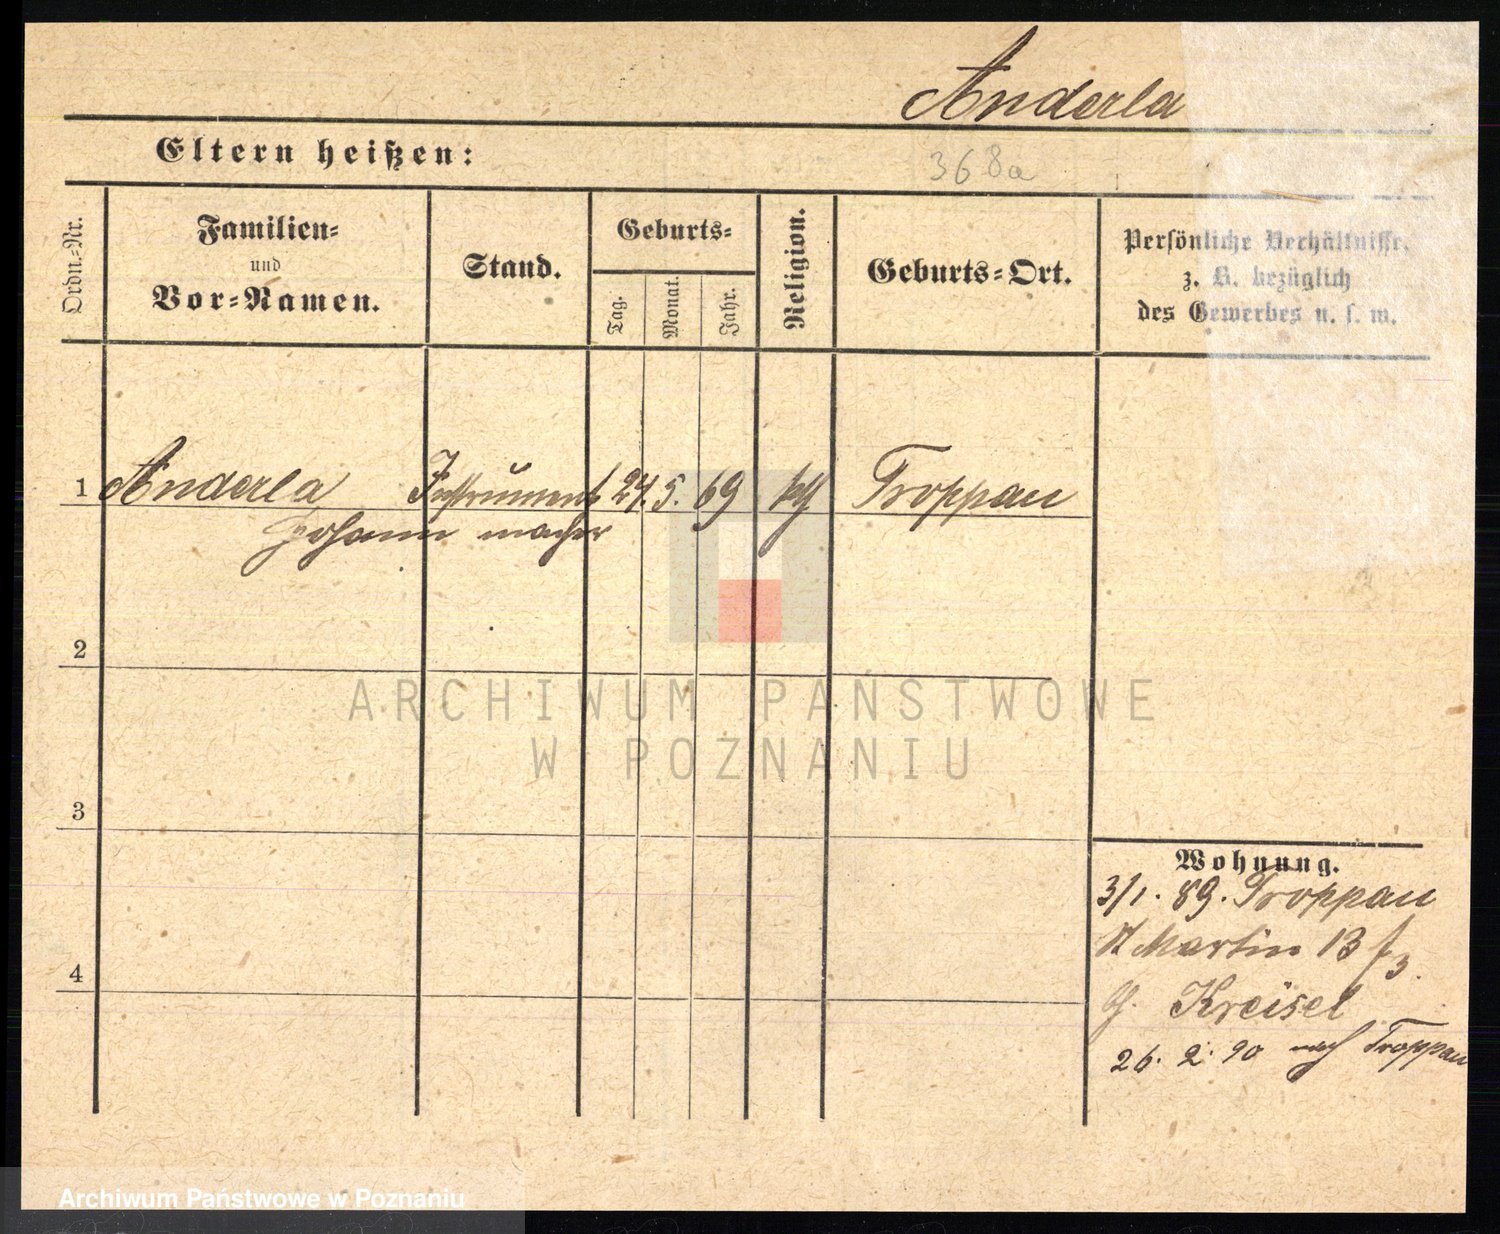 Anderla
Eltern heißen:
368a
Ordn.-Nr.
Familien-
und
Vor-Namen.
Stand.
Geburts-
Tag.
Monat.
Jahr.
Religion.
Geburts-Ort.
Persönliche Verhältnisse,
z. B. bezüglich
des Gewerbes u. s. w.
1 Anderla Instrument 24. 5. 69 kth Troppau
Johann macher
2
ARCHIWUM PAŃSTWOWE
W POZNANIU
3
4
Wohnung.
3/1. 89. Troppau
St Martin 13
Kreisel
26. 2. 90 nach Troppau
Archiwum Państwowe w Poznaniu